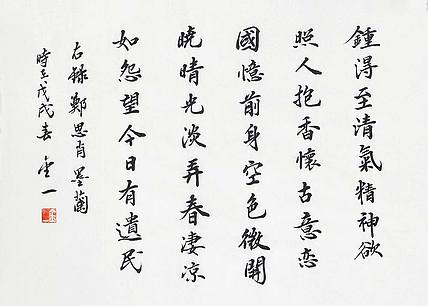 鍾得至清氣精神欲
照人抱香懷古意戀
國憶前身空色微開
曉晴光淡弄春淒涼
如怨望今日有遺民
右錄鄭思肖墨蘭
時在戊戌春 一